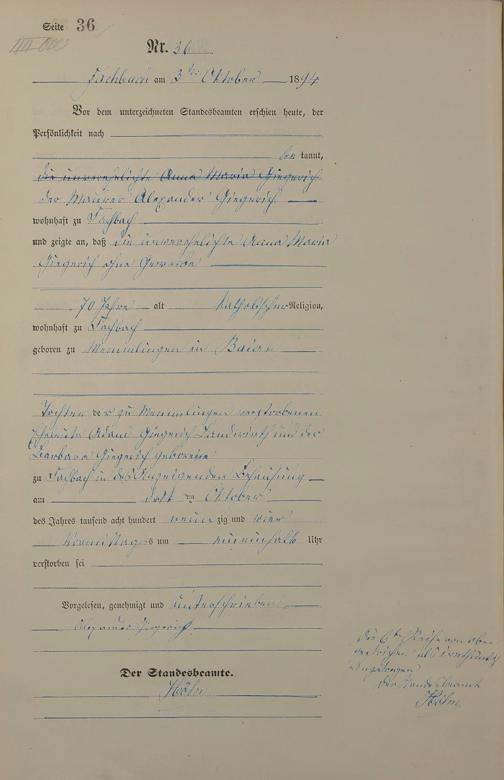 Seite 36
Nr. 36
Fachbach am 3ten Oktober 1894
Vor dem unterzeichneten Standesbeamten erschien heute, der
Persönlichkeit nach
be kannt,
die unverehelichte Anna Maria Giegerich
der Maurer Alexander Giegerich
wohnhaft zu Fachbach
und zeigte an, daß die unverehelichte Anna Maria
Giegerich ohne Gewerbe
70 Jahre alt katholischer Religion,
wohnhaft zu Fachbach
geboren zu Memmlingen in Baiern
Tochter der zu Memmlingen verstorbenen
Eheleute Adam Giegerich Landwirth und der
Barbara Giegerich geborene
zu Fachbach in des Anzeigenden Behausung
am ten Oktober
des Jahres tausend acht hundert neun zig und vier
Vormittags um neuneinhalb Uhr
verstorben sei
Vorgelesen, genehmigt und unterschrieben
Alexander Giegerich
Der Standesbeamte.
Höhn
Die 6te Reihe von oben
gestrichen als irrthümlich
eingetragen
Der Standesbeamte
Höhn